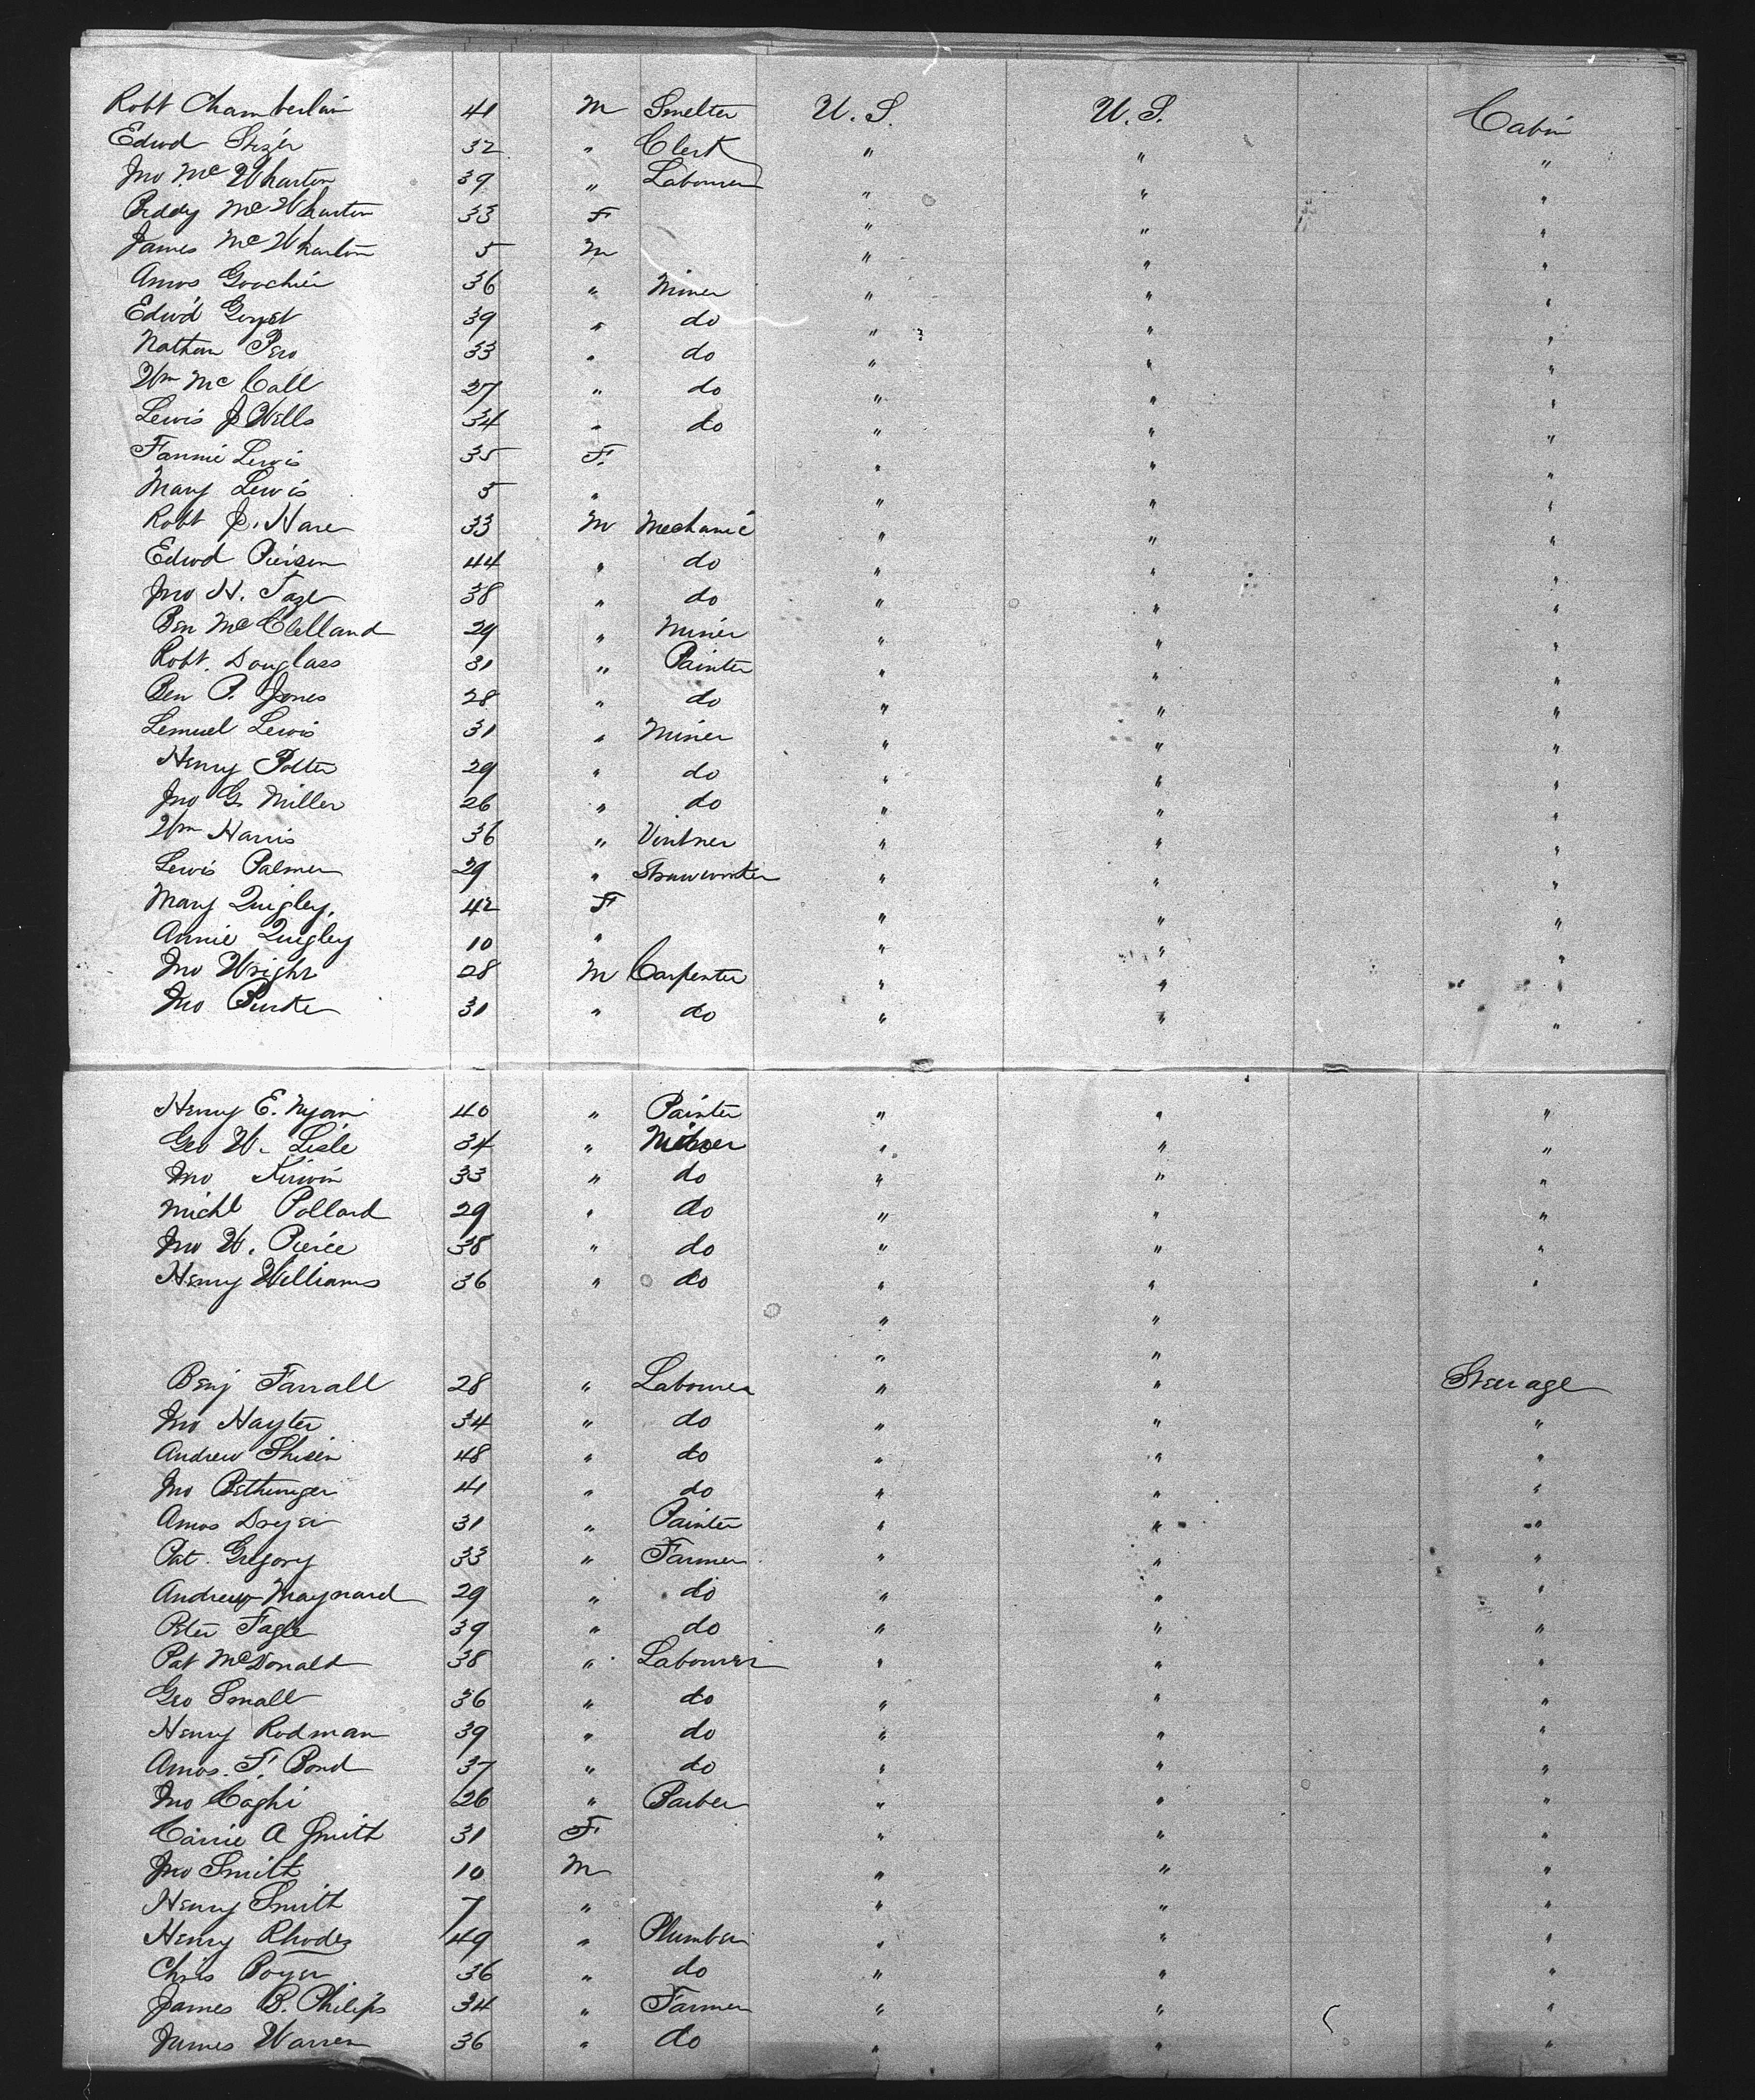 Robt Chamberlain 41 M Smelter U.S. U.S. Cabin
Edwd 32 " Clerk " " "
Jno McWharton 39 " Labourer " " "
Biddy McWharton 33 F " " "
James McWharton 5 M " " "
Amos 36 " Miner " " "
Edwd 39 " do " " "
Nathan Pero 33 " do " " "
Wm McCall 27 " do " " "
Lewis J Wells 34 " do " " "
Fannie Lewis 35 F. " " "
Mary Lewis 5 " " " "
Robt J. Hare 33 M Mechanic " " "
Edwd Pierson 44 " do " " "
Jno H. 38 " do " " "
Ben McClelland 29 " Miner " " "
Robt. Douglass 31 " Painter " " "
Ben P. Jones 28 " do " " "
Lemuel Lewis 31 " Miner " " "
Henry Potter 29 " do " " "
Jno G. Miller 26 " do " " "
Wm Harris 36 " Vintner " " "
Lewis Palmer 29 " Strawworker " " "
Mary Quigley. 42 F " " "
Annie Quigley 10 " " " "
Jno Wright 28 M Carpenter " " "
Jno Burke 31 " do " " "
Henry E. 40 " Painter " " "
Geo W. Lisle 34 " Miner " " "
Jno Kirwin 33 " do " " "
Michl Pollard 29 " do " " "
Jno W. Pierce 38 " do " " "
Henry Williams 36 " do " " "
" "
" "
Benj Farrall 28 " Labourer " " Steerage
Jno Hayter 34 " do " " "
Andrew 48 " do " " "
Jno Bethunger 41 " do " " "
Amos Dryer 31 " Painter " " "
Pat. Gregory 33 " Farmer " " "
Andrew Maynard 29 " do " " "
Peter Fagle 39 " do " " "
Pat McDonald 38 " Labourer " " "
Geo Small 36 " do " " "
Henry Rodman 39 " do " " "
Amos. F. Bond 37 " do " " "
Jno 26 " Barber " " "
Carrie A Smith 31 F " " "
Jno Smith 10 M " " "
Henry Smith 7 " " " "
Henry Rhodes 49 " Plumber " " "
Chris Boyer 36 " do " " "
James B. Philips 34 " Farmer " " "
James Warren 36 " do " " "